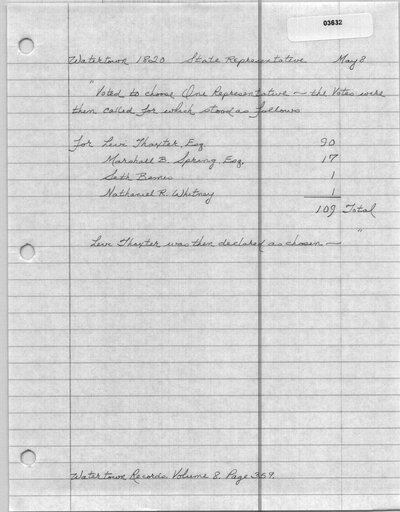 03632
Watertown 1820 State Representative May 8
"Voted to choose One Representative – the Votes were
then called for which stood as follows
for Levi Thaxter, Esq. 90
Marshall B. Spring, Esq. 17
Seth Bemis 1
Nathaniel R. Whitney 1
109 Total
Levi Thaxter was then declared as chosen – "
Watertown Records Volume 8, Page 359.